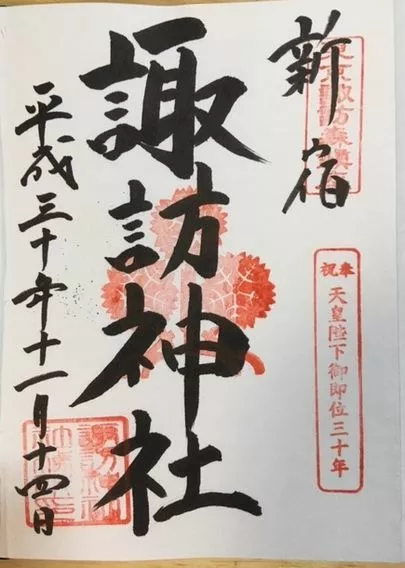 東京諏訪森
新宿
奉祝
天皇陛下御即位三十年
諏訪神社
平成三十年十一月十四日